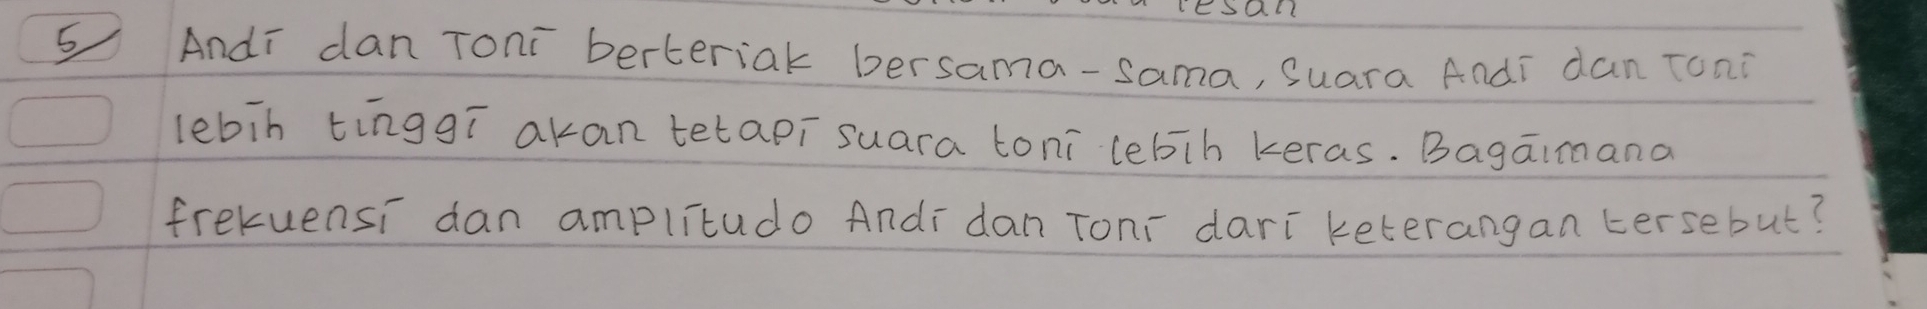 resan
5 Andi dan Toni berteriak bersama-sama, suara Andi dan Toni
lebih tinggi akan tetapi suara toni lebih keras. Bagaimana
frekuensi dan amplitudo Andi dan Toni dari keterangan tersebut?